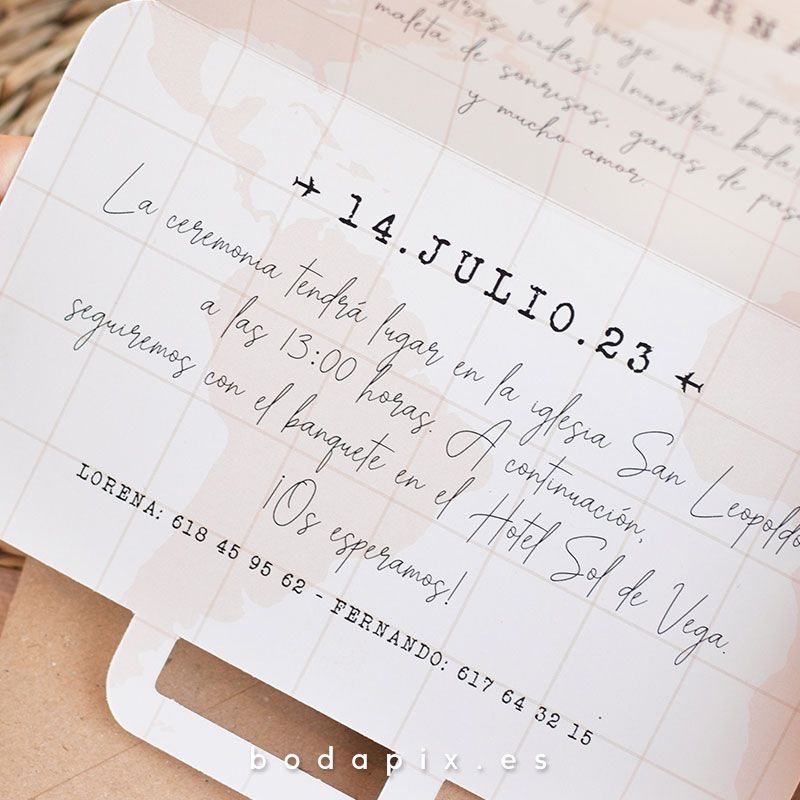 ERNA
el viaje más impor
stras vidas: ¡nuestra boda!
maleta de sonrisas, ganas de pas
y mucho amor.
14.JULIO.23
La ceremonia tendrá lugar en la iglesia San Leopoldo
a las 13:00 horas. A continuación,
seguiremos con el banquete en el Hotel Sol de Vega.
¡Os esperamos!
LORENA: 618 45 95 62 - FERNANDO: 617 64 32 15
bodapix.es